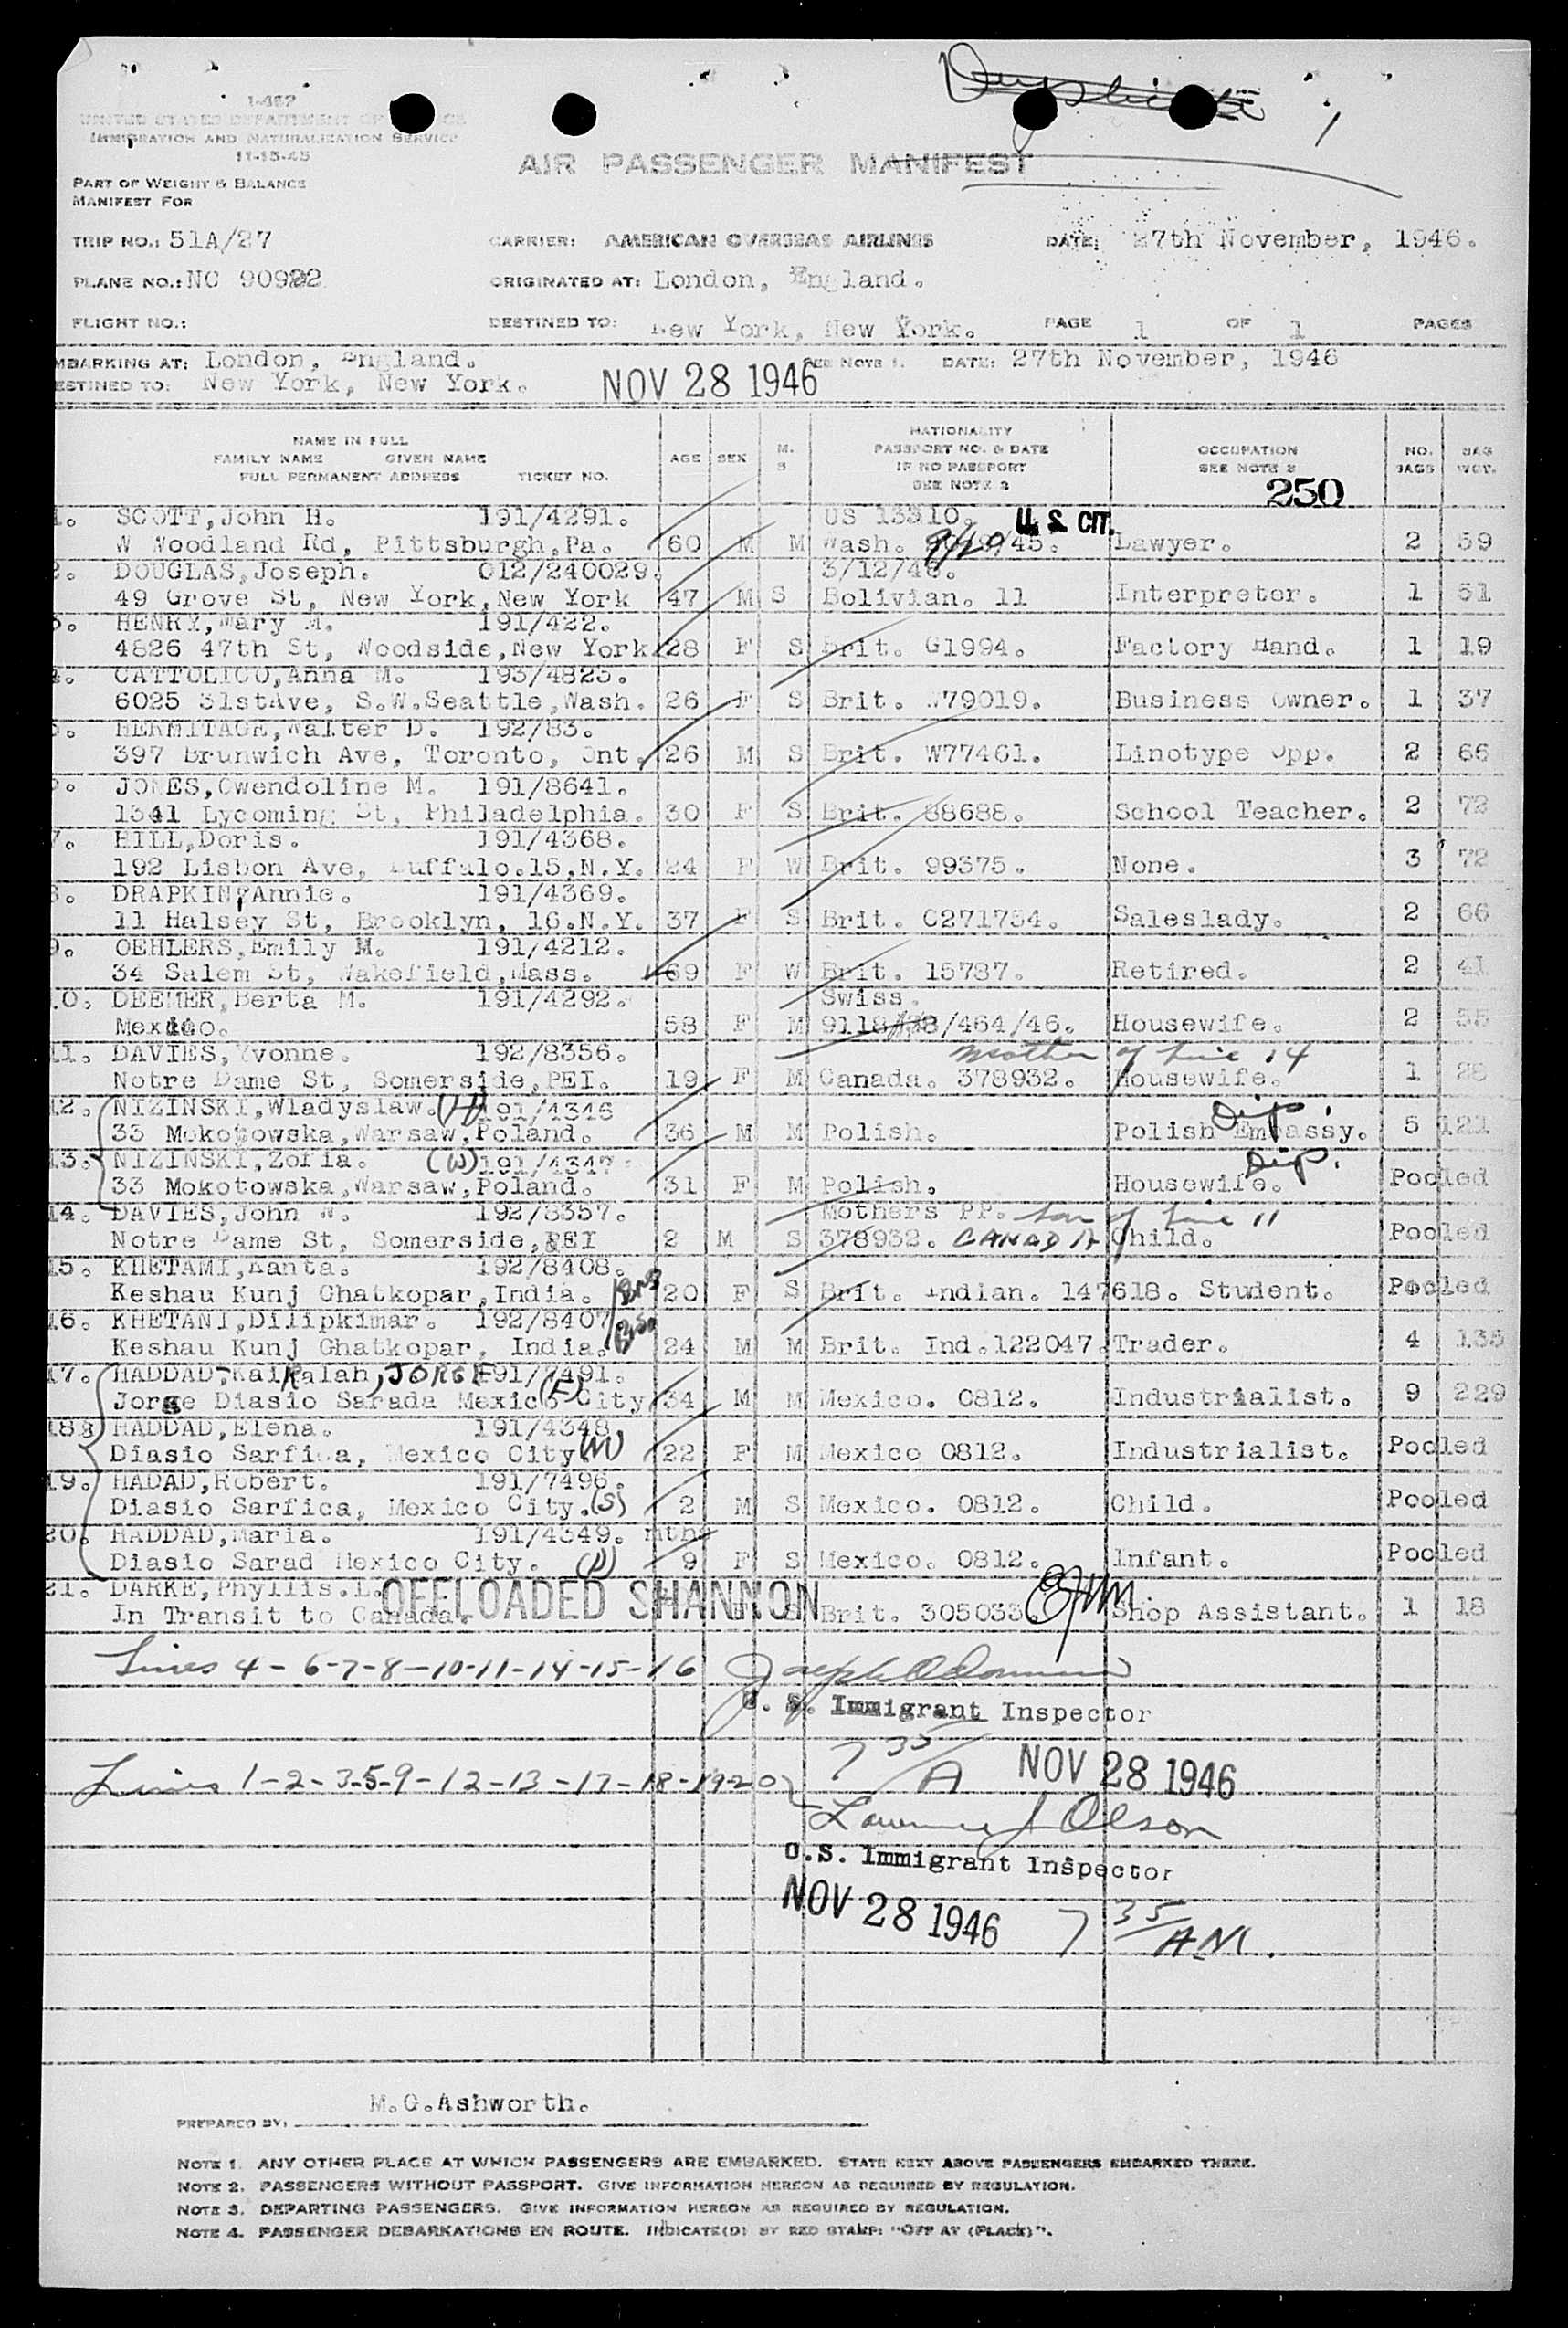 1-467
UNITED STATES DEPARTMENT OF
IMMIGRATION AND NATURALIZATION SERVICE
11-15-45
AIR PASSENGER MANIFEST
PART OF WEIGHT & BALANCE
MANIFEST FOR
TRIP NO.: 51A/27 CARRIER: AMERICAN OVERSEAS AIRLINES DATE: 27th November, 1946.
PLANE NO.: NC 90922 ORIGINATED AT: London, England.
FLIGHT NO.: DESTINED TO: New York, New York. PAGE 1 OF 1 PAGES
MBARKING AT: London, England. SEE NOTE 1. DATE: 27th November, 1946
ESTINED TO: New York, New York. NOV 28 1946
NAME IN FULL
FAMILY NAME GIVEN NAME
FULL PERMANENT ADDRESS TICKET NO.
AGE SEX M. S
NATIONALITY
PASSPORT NO. & DATE
IF NO PASSPORT
SEE NOTE 2
OCCUPATION
SEE NOTE 3
NO. BAGS BAG WGT.
250
1. SCOTT,John H. 191/4291. US 13310. U.S CIT.
W Woodland Rd, Pittsburgh,Pa. 60 M M Wash. 9/20/45. Lawyer. 2 59
2. DOUGLAS,Joseph. 012/240029. 3/12/46.
49 Grove St, New York,New York 47 M S Bolivian. 11 Interpreter. 1 51
3. HENRY,Mary M. 191/422.
4826 47th St, Woodside,New York 28 F S Brit. G1994. Factory Hand. 1 19
4. CATTOLICO,Anna M. 193/4825.
6025 31stAve, S.W.Seattle,Wash. 26 F S Brit. W79019. Business Owner. 1 37
5. HERMITAGE,Walter D. 192/83.
397 Brunwich Ave, Toronto, Ont. 26 M S Brit. W77461. Linotype Opp. 2 66
6. JONES,Gwendoline M. 191/8641.
1341 Lycoming St, Philadelphia. 30 F S Brit. 88688. School Teacher. 2 72
7. HILL,Doris. 191/4368.
192 Lisbon Ave, Buffalo.15,N.Y. 24 F W Brit. 99375. None. 3 72
8. DRAPKIN,Annie. 191/4369.
11 Halsey St, Brooklyn, 16.N.Y. 37 F S Brit. C271754. Saleslady. 2 66
9. OEHLERS,Emily M. 191/4212.
34 Salem St, Wakefield,Mass. 69 F W Brit. 15787. Retired. 2 41
10. DEEMER,Berta M. 191/4292. Swiss.
Mexico. 58 F M /464/46. Housewife. 2 55
11. DAVIES,Yvonne. 192/8356. mother of line 14
Notre Dame St, Somerside,PEI. 19 F M Canada. 378932. Housewife. 1 26
12. NIZINSKI,Wladyslaw. (H) 191/4346 Dip.
33 Mokotowska,Warsaw,Poland. 36 M M Polish. Polish Embassy. 5 121
13. NIZINSKI,Zofia. (W) 191/4347 Dip.
33 Mokotowska,Warsaw,Poland. 31 F M Polish. Housewife. Pooled
14. DAVIES,John W. 192/8357. Mothers PP. son of line 11
Notre Dame St, Somerside,PEI 2 M S 378932. CANADA Child. Pooled
15. KHETAMI,Kanta. 192/8408.
Keshau Kunj Ghatkopar,India. 20 F S Brit. Indian. 147618. Student. Pooled
16. KHETANI,Dilipkimar. 192/8407
Keshau Kunj Ghatkopar, India. 24 M M Brit. Ind.122047. Trader. 4 135
17. HADDAD,KaiRalah, JORGE 191/7491.
Jorge Diasio Sarada Mexico City (F) 34 M M Mexico. 0812. Industrialist. 9 229
18. HADDAD,Elena. 191/4348.
Diasio Sarfica, Mexico City. (W) 22 F M Mexico 0812. Industrialist. Pooled
19. HADAD,Robert. 191/7496.
Diasio Sarfica, Mexico City. (S) 2 M S Mexico. 0812. Child. Pooled
20. HADDAD,Maria. 191/4349. mths
Diasio Sarad Mexico City. (D) 9 F S Mexico. 0812. Infant. Pooled
21. DARKE,Phyllis.L. OFFLOADED SHANNON
In Transit to Canada. S Brit. 305033. Shop Assistant. 1 18
Lines 4-6-7-8-10-11-14-15-16
U. S. Immigrant Inspector
7 35/A NOV 28 1946
Lines 1-2-3-5-9-12-13-17-18-19-20
Lawrence J Olson
U.S. Immigrant Inspector
NOV 28 1946 7 35/AM.
M.G.Ashworth.
PREPARED BY:
NOTE 1. ANY OTHER PLACE AT WHICH PASSENGERS ARE EMBARKED. STATE NEXT ABOVE PASSENGERS EMBARKED THERE.
NOTE 2. PASSENGERS WITHOUT PASSPORT. GIVE INFORMATION HEREON AS REQUIRED BY REGULATION.
NOTE 3. DEPARTING PASSENGERS. GIVE INFORMATION HEREON AS REQUIRED BY REGULATION.
NOTE 4. PASSENGER DEBARKATIONS EN ROUTE. INDICATE(D) BY RED STAMP: "OFF AT (PLACE)".